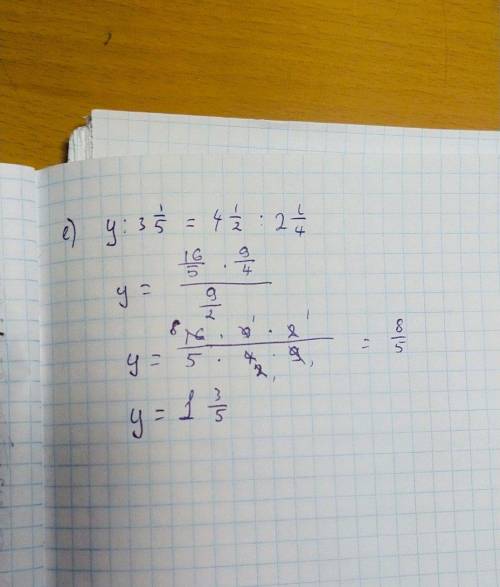 e) y : 3 1/5 = 4 1/2 : 2 1/4
y = (16/5 · 9/4) / (9/2)
y = (16 8 · 9 1 · 2 1) / (5 · 4 2 1 · 9 1) = 8/5
y = 1 3/5